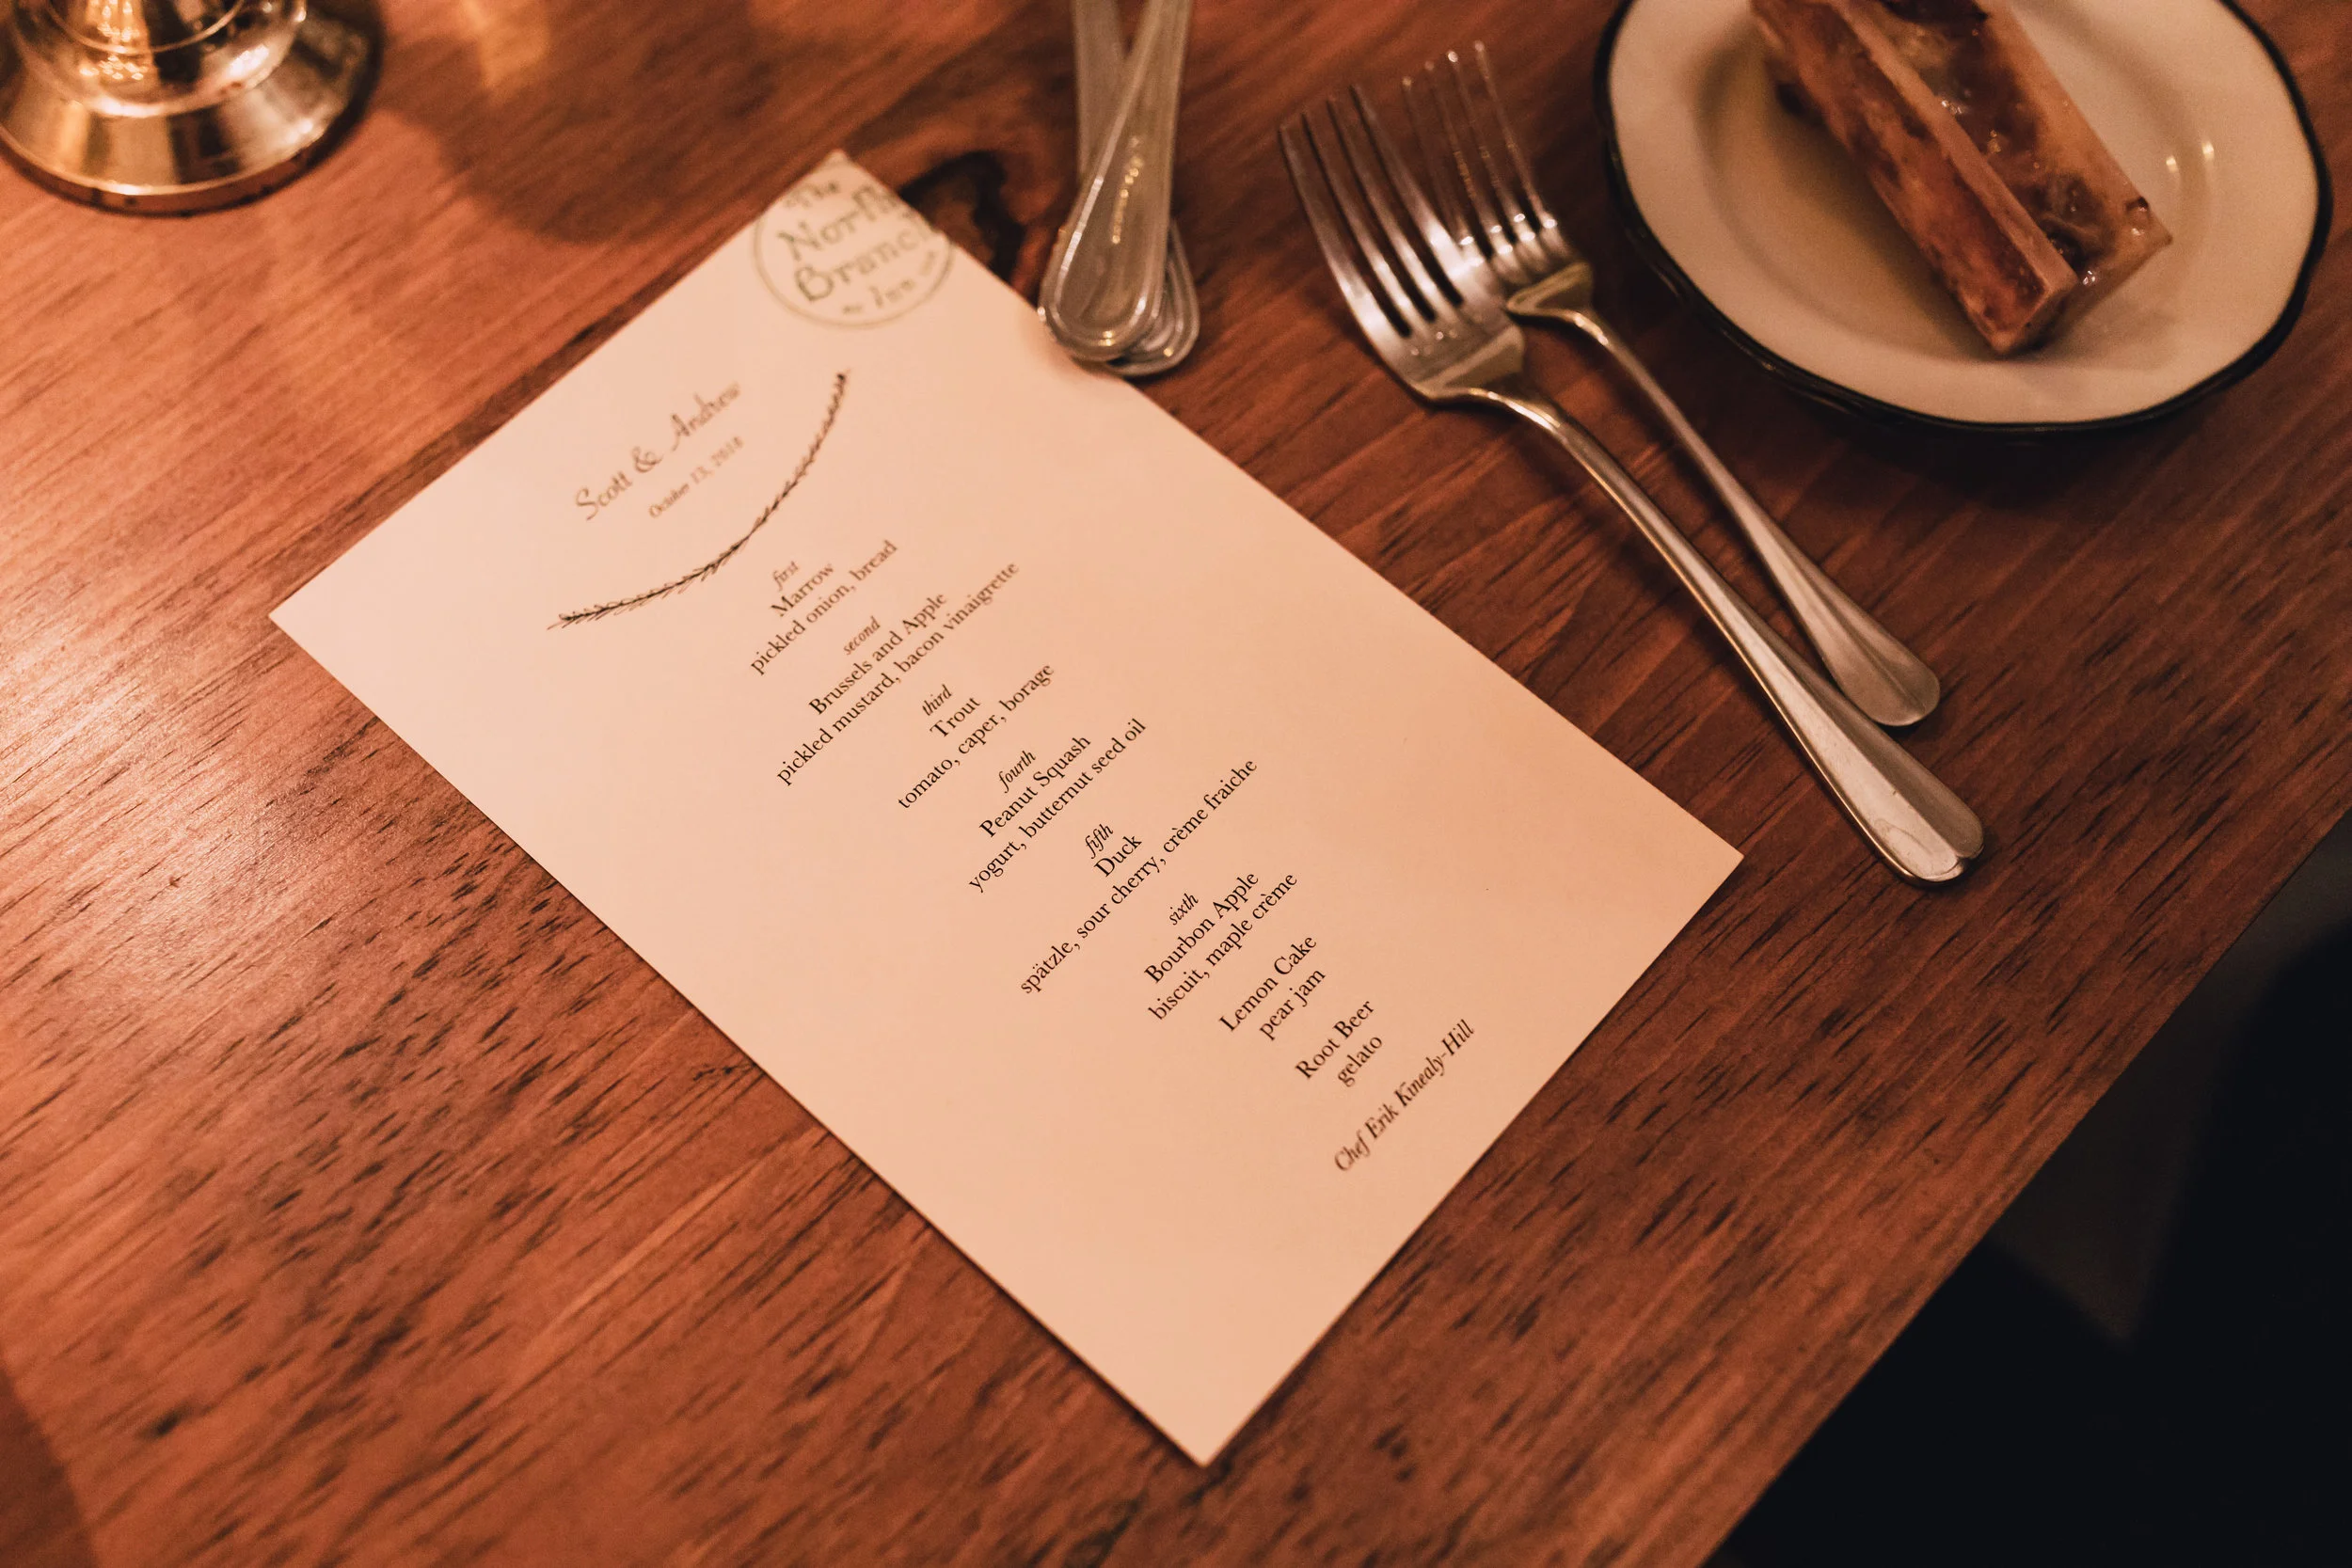 The
North
Branch
Inn
Scott & Andrew
October 13, 2018
first
Marrow
pickled onion, bread
second
Brussels and Apple
pickled mustard, bacon vinaigrette
third
Trout
tomato, caper, borage
fourth
Peanut Squash
yogurt, butternut seed oil
fifth
Duck
spätzle, sour cherry, crème fraiche
sixth
Bourbon Apple
biscuit, maple crème
Lemon Cake
pear jam
Root Beer
gelato
Chef Erik Kinealy-Hill